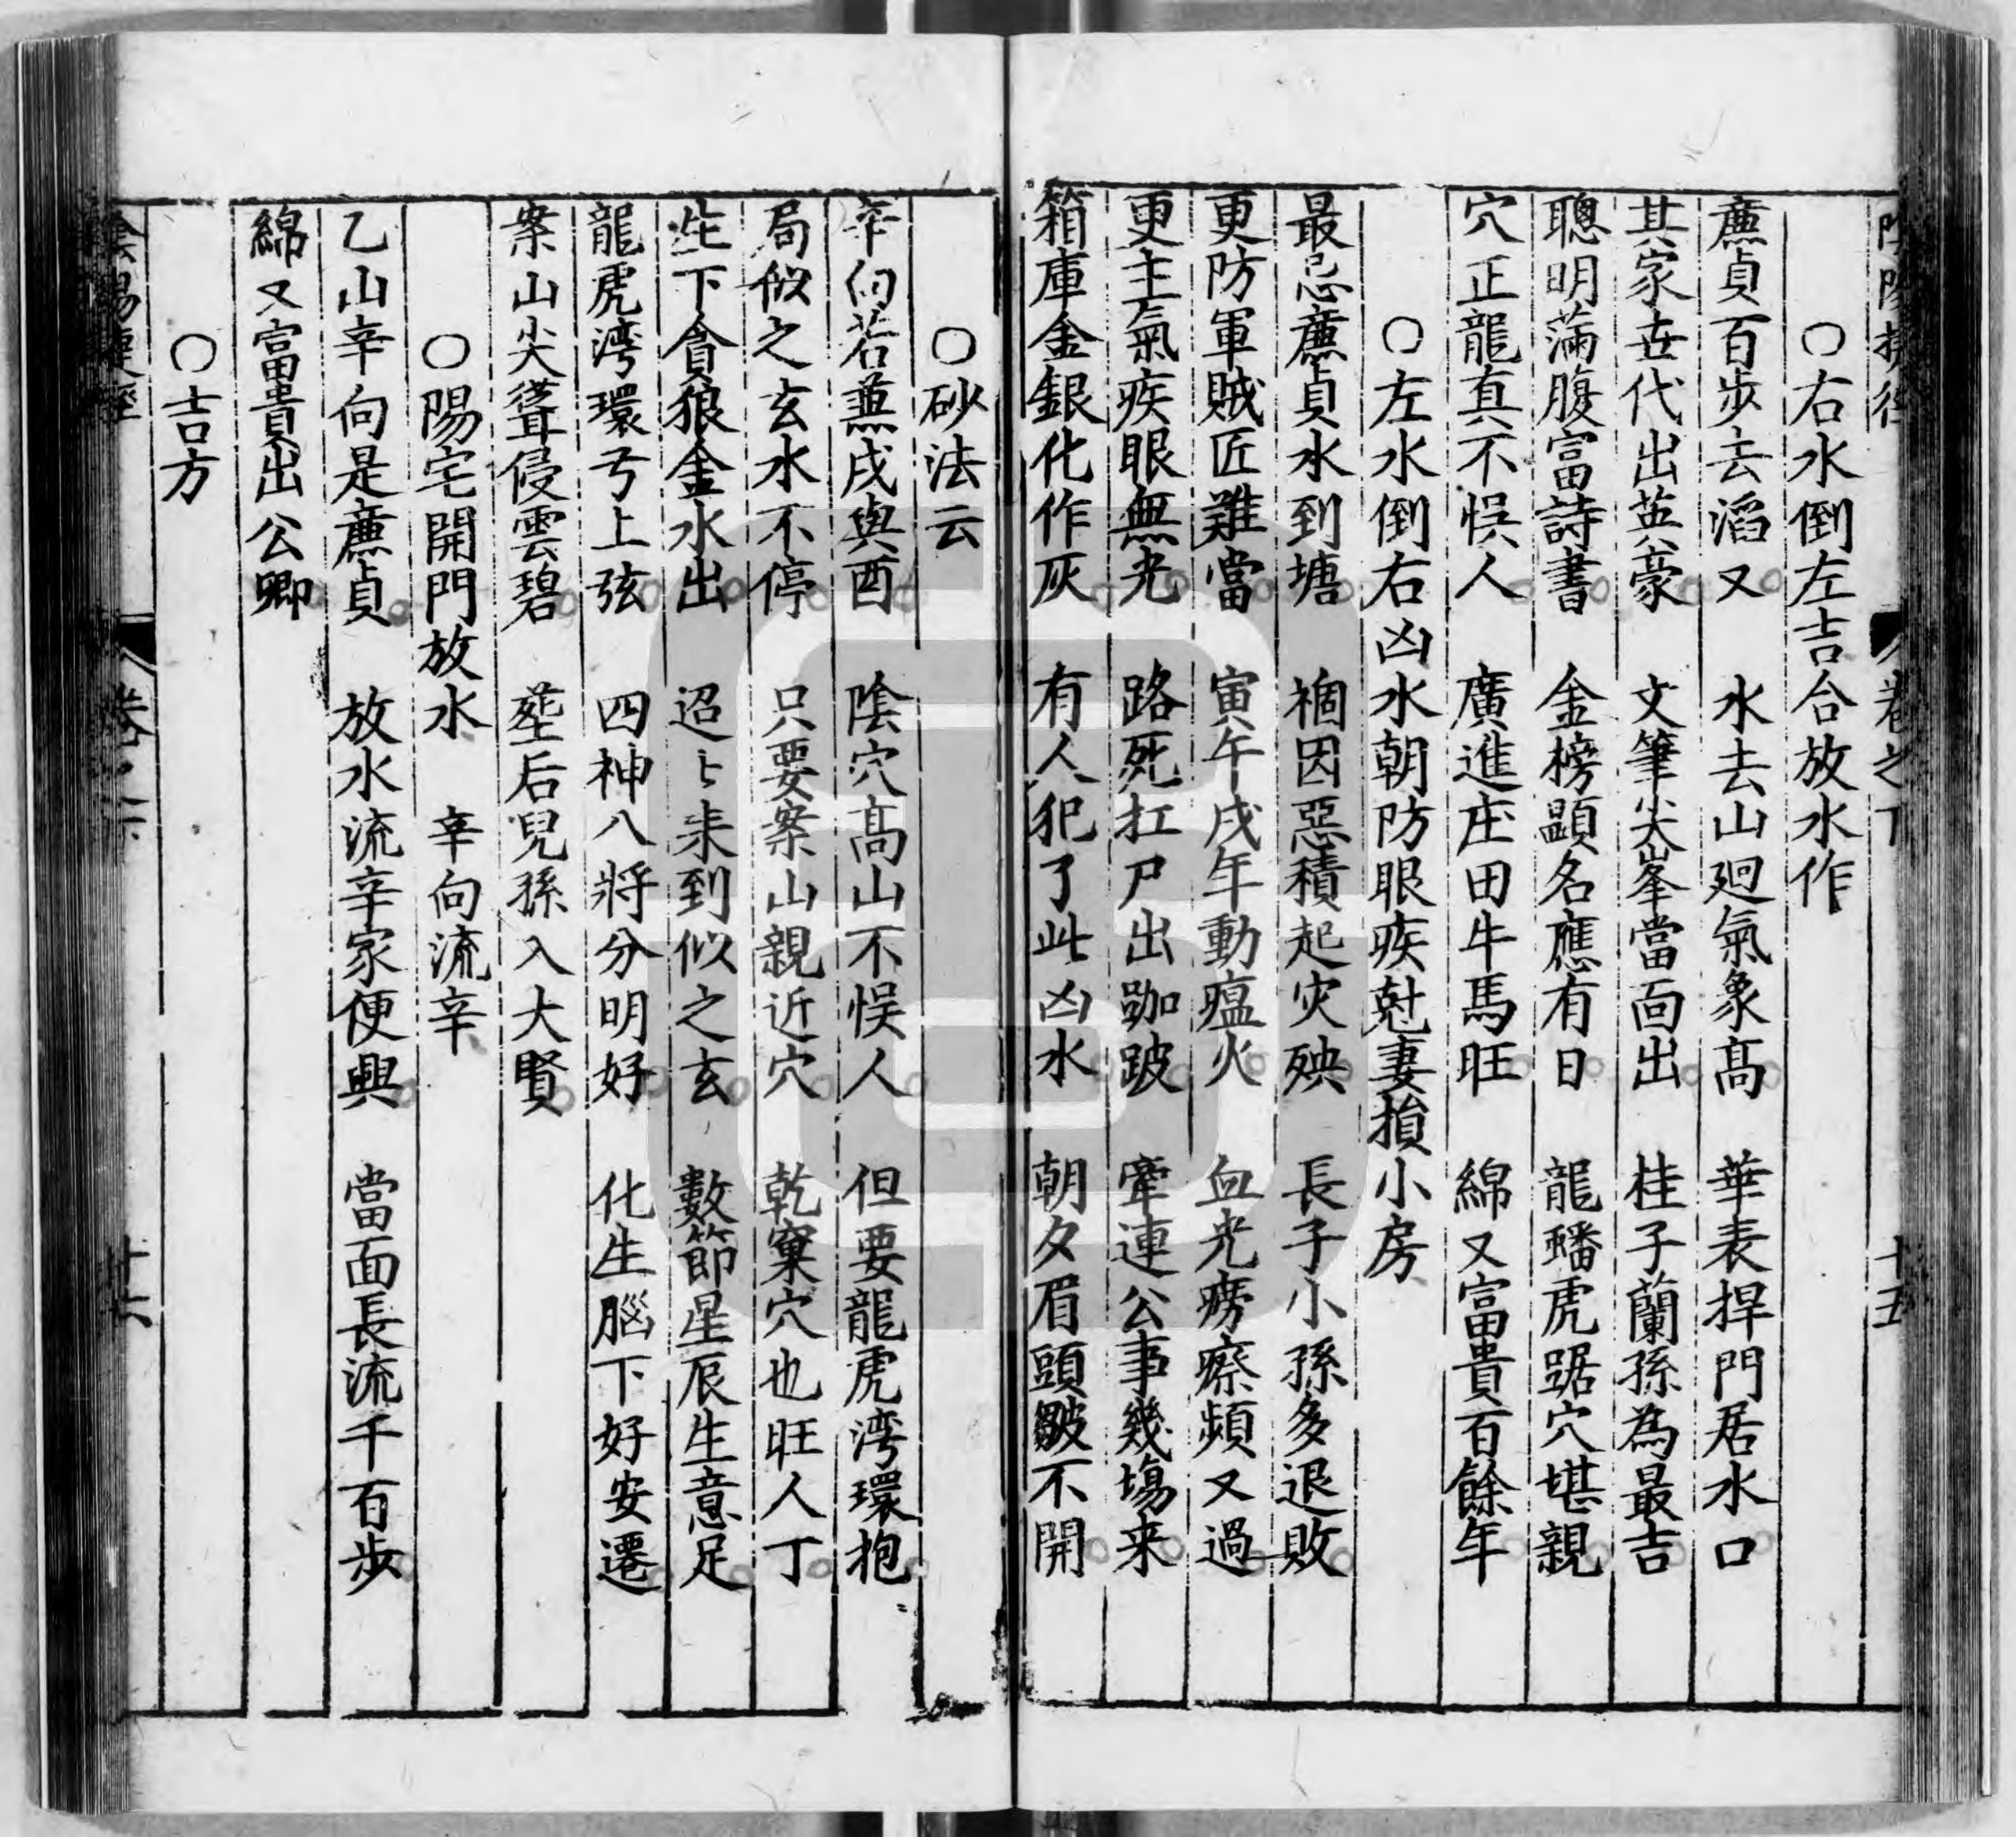 卷之下
十五
○右水倒左吉合放水作
廉貞百步去滔又　水去山廻氣象髙　華表捍門居水口
其家世代出英豪　文筆尖峯當面出　桂子蘭孫為最吉
聰明滿腹富詩書　金榜顯名應有日　龍蟠虎踞穴堪親
穴正龍真不悞人　廣進庄田牛馬旺　綿又富貴百餘年
○左水倒右凶水朝防眼疾尅妻損小房
最忌廉貞水到塘　禍因惡積起灾殃　長子小孫多退敗
更防軍賊匠難當　寅午戌年動瘟火　血光癆瘵頻又過
更主氣疾眼無光　路死扛尸出跏跛　牽連公事幾塲来
箱庫金銀化作灰　有人犯了此凶水　朝夕眉頭皺不開
○砂法云
辛向若兼戌與酉　陰穴髙山不悞人　但要龍虎湾環抱
局似之玄水不停　只要案山親近穴　乾窠穴也旺人丁
坐下貪狼金水出　迢々来到似之玄　數節星辰生意足
龍虎湾環弓上弦　四神八將分明好　化生腦下好安遷
案山尖聳侵雲碧　塟后兒孫入大賢
○陽宅開門放水　辛向流辛
乙山辛向是廉貞　放水流辛家便興　當面長流千百步
綿又富貴出公卿
○吉方
十六